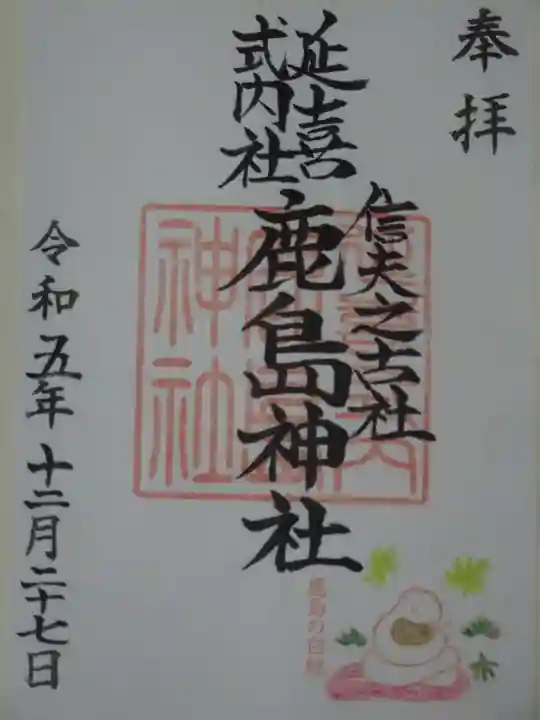 奉拝
信夫之古社
延喜
式内社
鹿島神社
令和五年十二月二十七日
鹿島の白蛇